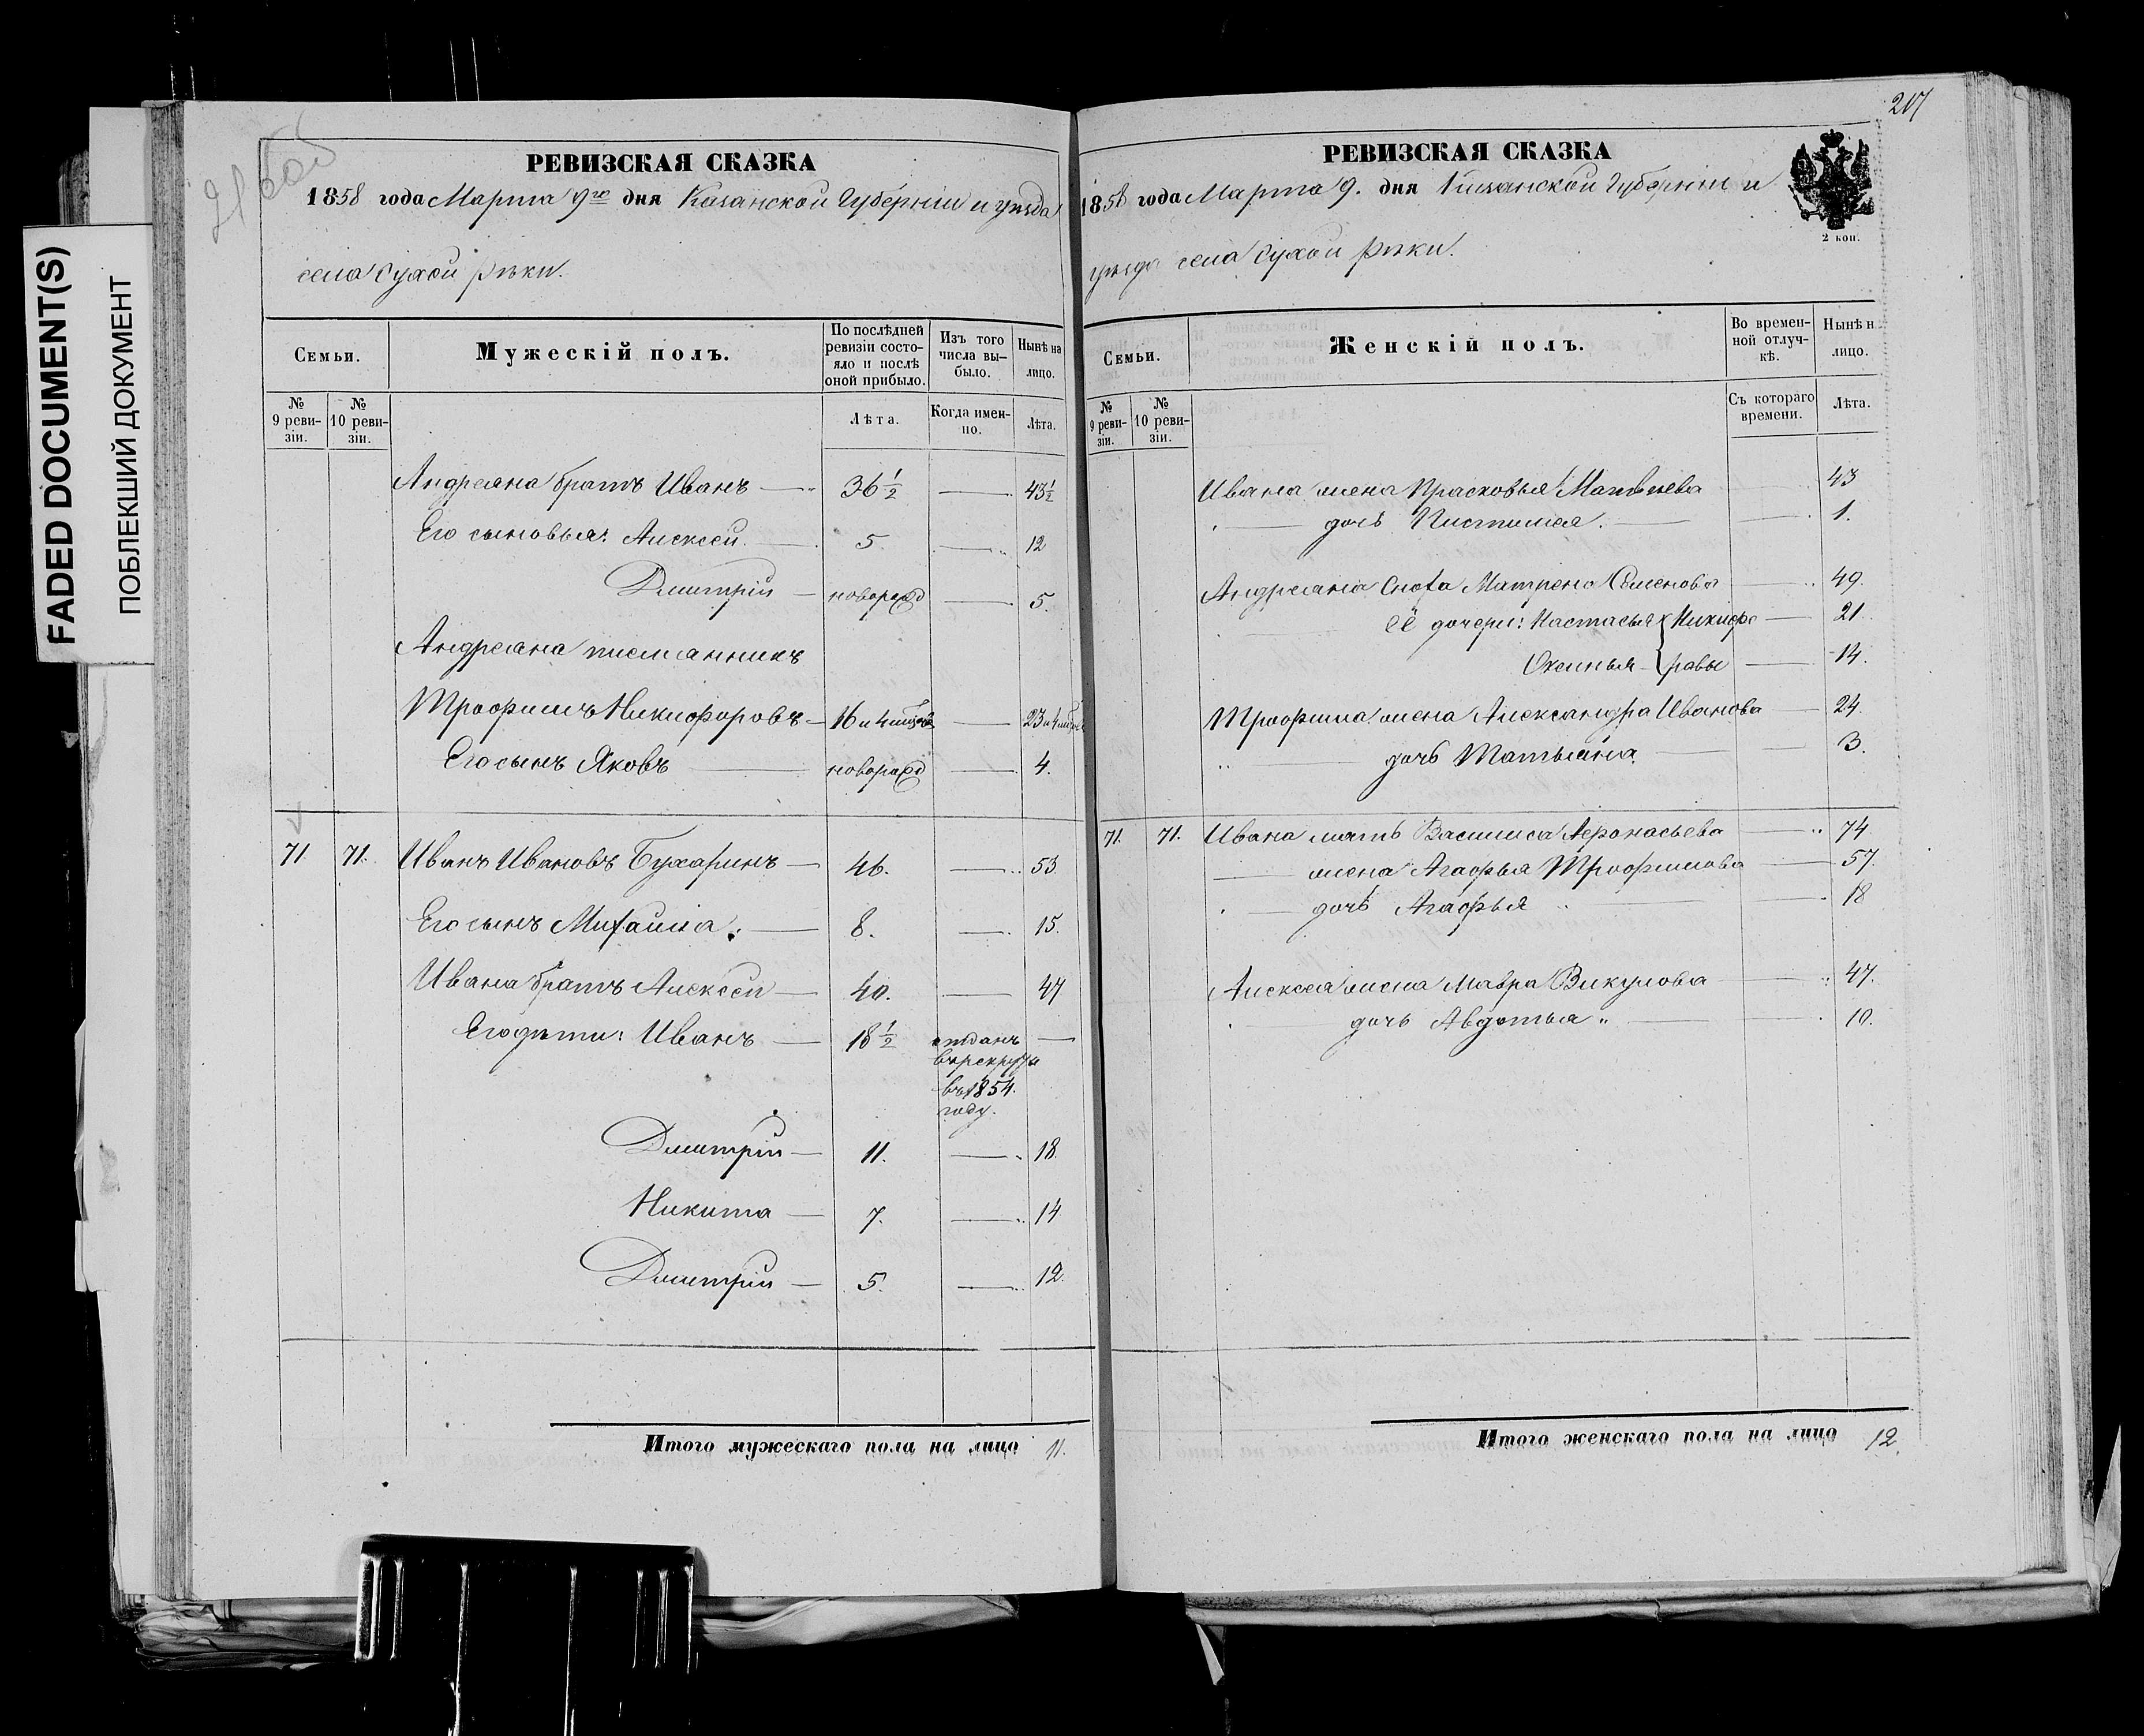 FADED DOCUMENT(S)
ПОБЛЕКШИЙ ДОКУМЕНТ
РЕВИЗСКАЯ СКАЗКА
1858 года Марта 9го дня Казанской Губерніи и уѣзда
села Сухой рѣки.
Семьи.
Мужескій полъ.
По послѣдней ревизіи состояло и послѣ оной прибыло.
Изъ того числа выбыло.
Нынѣ на лицо.
№ 9 ревизіи.
№ 10 ревизіи.
Лѣта.
Когда именно.
Лѣта.
Андреяна братъ Иванъ — 36 1/2 — 43 1/2
Его сыновья: Алексей — 5. — 12
Дмитрій — новорожд — 5.
Андреяна племянникъ
Трофимъ Никифоровъ — 16 и 4 — 23 и 4
Его сынъ Яковъ — новорожд — 4.
71 71. Иванъ Ивановъ Бухаринъ — 46. — 53
Его сынъ Михаила. — 8. — 15.
Ивана братъ Алексей — 40. — 47
Его дѣти: Иванъ — 18 1/2 отданъ —
въ рекруты
въ 1854.
году.
Дмитрій — 11. — 18.
Никита — 7. — 14
Дмитрій — 5. — 12.
Итого мужескаго пола на лицо 11.
217
РЕВИЗСКАЯ СКАЗКА
1858 года Марта 9. дня Казанской Губерніи и
уѣзда села Сухой рѣки.
2 коп.
Семьи.
Женскій полъ.
Во временной отлучкѣ.
Нынѣ н лицо.
№ 9 ревизіи.
№ 10 ревизіи.
Съ котораго времени.
Лѣта.
Ивана жена Прасковья Матвѣева — 43
— дочь — 1.
Андреяна сноха Матрена Семенова — 49.
Её дочери: Настасья Никифо — 21.
Оксинья ровы — 14.
Трофима жена Александра Иванова — 24.
дочь Татьяна — 3.
71. 71. Ивана мать Василиса Афонасьева — 74
— жена Агафья Трофимова — 57.
— дочь Агафья — 18
Алексея жена Мавра Викулова — 47.
дочь Авдотья — 10.
Итого женскаго пола на лицо 12.